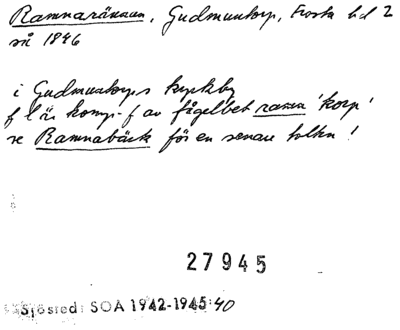 Ramnarännan, Gudmuntorp, Frosta hd 2
så 1846
i Gudmuntorps kyrkby
f l är komp-f av fågelbet ramn 'korp'
se Ramnabäck för en senare tolkn!
27945
Sjösred: SOA 1942-1945:40